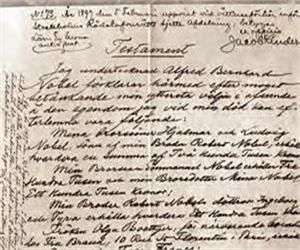 No 73. År 1897 den 5 Februari uppvist vid vittnesförhör inför
Stockholms Rådstufvurätts sjette Afdelning, betygar
Testament
Jag undertecknad Alfred Bernhard
Nobel förklarar härmed efter moget
betänkande min yttersta vilja i afseende
å den egendom jag vid min död kan ef-
terlemna vara följande:
Mina Brorsöner Hjalmar och Ludvig
Nobel, söner af min Broder Robert Nobel, erhålla
hvardera en summa af Två Hundra Tusen Kronor
Min Brorsson Emmanuel Nobel erhåller Tre
Hundra Tusen och min Brorsdotter Mina Nobel
Ett Hundra Tusen Kronor;
Min Broder Robert Nobels döttrar Ingeborg
och Tyra erhålla hvardera Ett Hundra Tusen
Fröken Olga Boettger, för närvarande boende
10 Rue St Florentin, Paris,